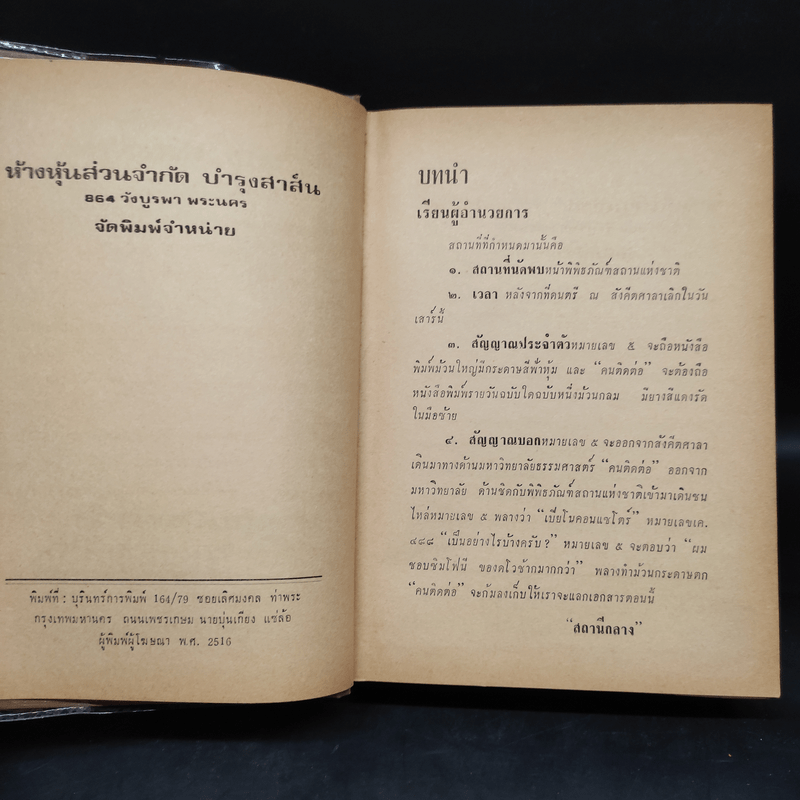 ห้างหุ้นส่วนจำกัด บำรุงสาส์น
864 วังบูรพา พระนคร
จัดพิมพ์จำหน่าย
พิมพ์ที่ : บุรินทร์การพิมพ์ 164/79 ซอยเลิศมงคล ท่าพระ
กรุงเทพมหานคร ถนนเพชรเกษม นายบุ่นเกียง แซ่ล้อ
ผู้พิมพ์ผู้โฆษณา พ.ศ. 2516
บทนำ
เรียนผู้อำนวยการ
สถานที่ที่กำหนดมานั้นคือ
๑. สถานที่นัดพบหน้าพิพิธภัณฑ์สถานแห่งชาติ
๒. เวลา หลังจากที่ดนตรี ณ สังคีตศาลาเลิกในวัน
เสาร์นี้
๓. สัญญาณประจำตัวหมายเลข ๕ จะถือหนังสือ
พิมพ์ม้วนใหญ่มีกระดาษสีฟ้าหุ้ม และ “คนติดต่อ” จะต้องถือ
หนังสือพิมพ์รายวันฉบับใดฉบับหนึ่งม้วนกลม มียางสีแดงรัด
ในมือซ้าย
๔. สัญญาณบอกหมายเลข ๕ จะออกจากสังคีตศาลา
เดินมาทางด้านมหาวิทยาลัยธรรมศาสตร์ “คนติดต่อ” ออกจาก
มหาวิทยาลัย ด้านชิดกับพิพิธภัณฑ์สถานแห่งชาติเข้ามาเดินชน
ไหล่หมายเลข ๕ พลางว่า “เปียโนคอนแชโตร์” หมายเลขเค.
๔๘๘ “เป็นอย่างไรบ้างครับ?” หมายเลข ๕ จะตอบว่า “ผม
ชอบซิมโฟนี ของดโวซ้ากมากกว่า” พลางทำม้วนกระดาษตก
“คนติดต่อ” จะก้มลงเก็บให้เราจะแลกเอกสารตอนนี้
“สถานีกลาง”